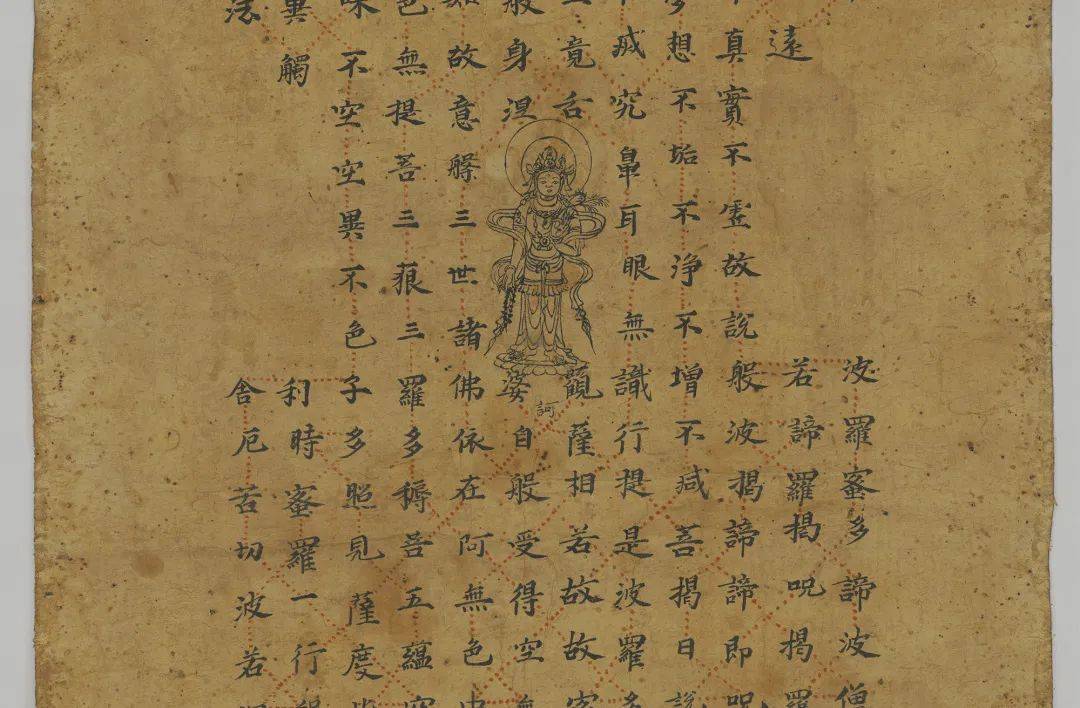 遠
若諦羅揭呪揭羅
波羅蜜多諦波僧
真實不虛故說般波揭諦諦即呪
想不垢不淨不增不減菩揭曰說
究鼻耳眼無識行提是波羅多
竟舌觀薩相若故故空
訶
般身涅婆自般受得空無
如故意三世諸佛依在阿無色中
色無提菩三藐三羅多耨菩五蘊空
味不空空異不色子多照見薩度
異觸利時蜜羅一行
法舍厄苦切波若